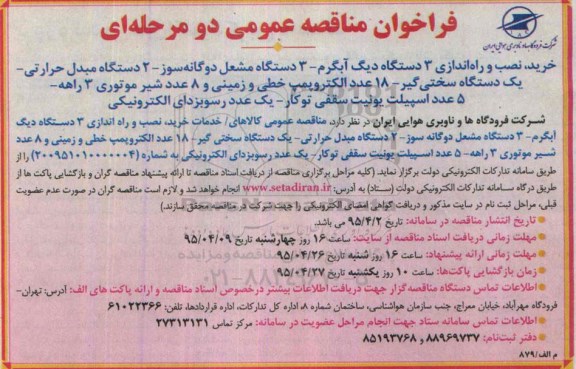 فراخوان مناقصه عمومی دو مرحله‌ای
شرکت فرودگاهها و ناوبری هوایی ایران
خرید، نصب و راه‌اندازی ۳ دستگاه دیگ آبگرم- ۳ دستگاه مشعل دوگانه‌سوز- ۲ دستگاه مبدل حرارتی-
یک دستگاه سختی‌گیر- ۱۸ عدد الکتروپمپ خطی و زمینی و ۸ عدد شیر موتوری ۳ راهه-
۵ عدد اسپیلت یونیت سقفی توکار- یک عدد رسوبزدای الکترونیکی
شرکت فرودگاه ها و ناوبری هوایی ایران در نظر دارد، مناقصه عمومی کالاهای/ خدمات خرید، نصب و راه اندازی ۳ دستگاه دیگ
آبگرم- ۳ دستگاه مشعل دوگانه سوز- ۲ دستگاه مبدل حرارتی- یک دستگاه سختی گیر- ۱۸ عدد الکتروپمپ خطی و زمینی و ۸ عدد
شیر موتوری ۳ راهه- ۵ عدد اسپیلت یونیت سقفی توکار- یک عدد رسوبزدای الکترونیکی به شماره (۲۰۰۹۵۱۰۱۰۰۰۰۰۰۴) را از
طریق سامانه تدارکات الکترونیکی دولت برگزار نماید. (کلیه مراحل برگزاری مناقصه از دریافت اسناد مناقصه تا ارائه پیشنهاد مناقصه گران و بازگشایی پاکت ها از
طریق درگاه سامانه تدارکات الکترونیکی دولت (ستاد) به آدرس: www.setadiran.ir انجام خواهد شد و لازم است مناقصه گران در صورت عدم عضویت
قبلی، مراحل ثبت نام در سایت مذکور و دریافت گواهی امضای الکترونیکی را جهت شرکت در مناقصه محقق سازند.)
● تاریخ انتشار مناقصه در سامانه: تاریخ ۹۵/۴/۲ می باشد.
● مهلت زمانی دریافت اسناد مناقصه از سایت: ساعت ۱۶ روز چهارشنبه تاریخ ۹۵/۰۴/۰۹
● مهلت زمانی ارائه پیشنهاد: ساعت ۱۶ روز شنبه تاریخ ۹۵/۰۴/۲۶
● زمان بازگشایی پاکت‌ها: ساعت ۱۰ روز یکشنبه تاریخ ۹۵/۰۴/۲۷
● اطلاعات تماس دستگاه مناقصه‌گزار جهت دریافت اطلاعات بیشتر درخصوص اسناد مناقصه و ارائه پاکت های الف: آدرس: تهران-
فرودگاه مهرآباد، خیابان معراج، جنب سازمان هواشناسی، ساختمان شماره ۸، اداره کل تدارکات، اداره قراردادها، تلفن: ۶۱۰۲۲۳۶۶
● اطلاعات تماس سامانه ستاد جهت انجام مراحل عضویت در سامانه: مرکز تماس ۲۷۳۱۳۱۳۱
● دفتر ثبت‌نام: ۸۸۹۶۹۷۳۷ و ۸۵۱۹۳۷۶۸
م الف/۸۷۹